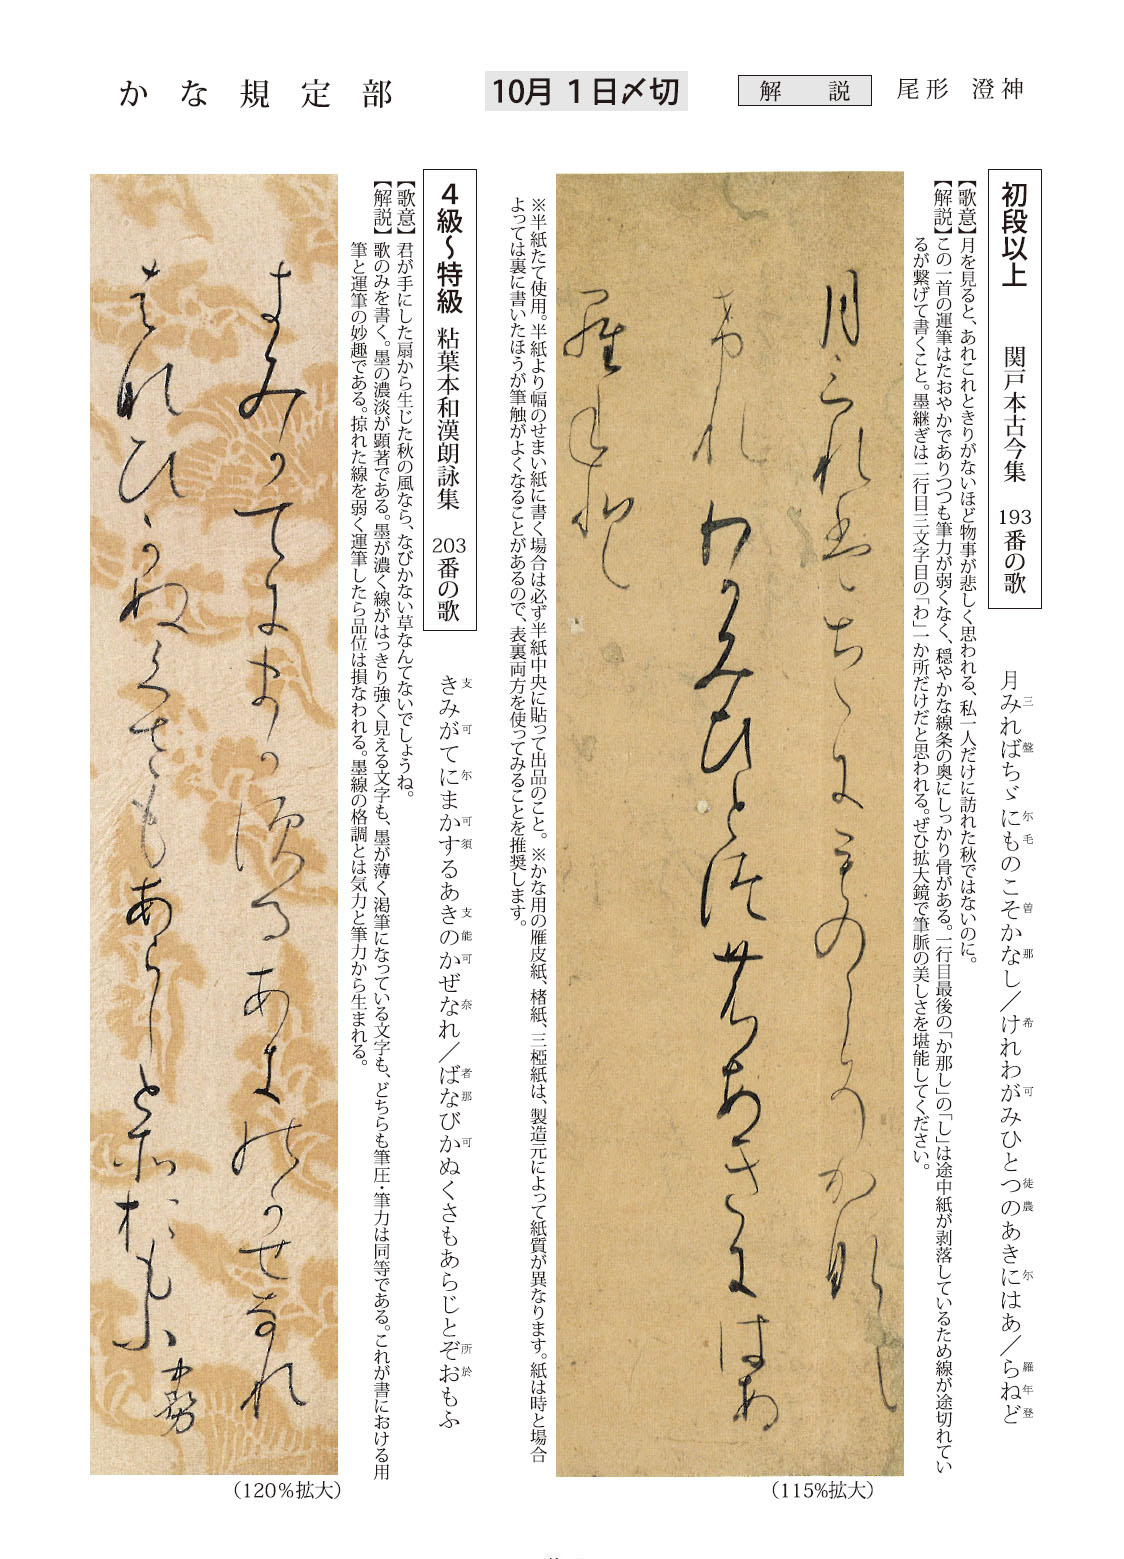 かな規定部
10月1日〆切
解説
尾形 澄神
初段以上 関戸本古今集 193番の歌
月みればちゞにものこそかなし／けれわがみひとつのあきにはあ／らねど
三 盤 尓 毛 曽 那 希 可 徒 農 尓 羅 年 登
【歌意】月を見ると、あれこれときりがないほど物事が悲しく思われる、私一人だけに訪れた秋ではないのに。
【解説】この一首の運筆はたおやかでありつつも筆力が弱くなく、穏やかな線条の奥にしっかり骨がある。一行目最後の「か那し」の「し」は途中紙が剥落しているため線が途切れてい
るが繋げて書くこと。墨継ぎは二行目三文字目の「わ」一か所だけだと思われる。ぜひ拡大鏡で筆脈の美しさを堪能してください。
月三れ盤ちゝに毛のこそか那し
希れわ可みひと徒農あきには あ
羅年登
（115%拡大）
※半紙たて使用。半紙より幅のせまい紙に書く場合は必ず半紙中央に貼って出品のこと。※かな用の雁皮紙、楮紙、三椏紙は、製造元によって紙質が異なります。紙は時と場合
よっては裏に書いたほうが筆触がよくなることがあるので、表裏両方を使ってみることを推奨します。
4級〜特級 粘葉本和漢朗詠集 203番の歌
きみがてにまかするあきのかぜなれ／ばなびかぬくさもあらじとぞおもふ
支 可 尓 可 須 支 能 可 奈 者 那 可 所 於
【歌意】君が手にした扇から生じた秋の風なら、なびかない草なんてないでしょうね。
【解説】歌のみを書く。墨の濃淡が顕著である。墨が濃く線がはっきり強く見える文字も、墨が薄く渇筆になっている文字も、どちらも筆圧・筆力は同等である。これが書における用
筆と運筆の妙趣である。掠れた線を弱く運筆したら品位は損なわれる。墨線の格調とは気力と筆力から生まれる。
支み可て尓ま可須るあ支能可せ奈れ
者那ひ可ぬくさもあらしと所於もふ
（120%拡大）